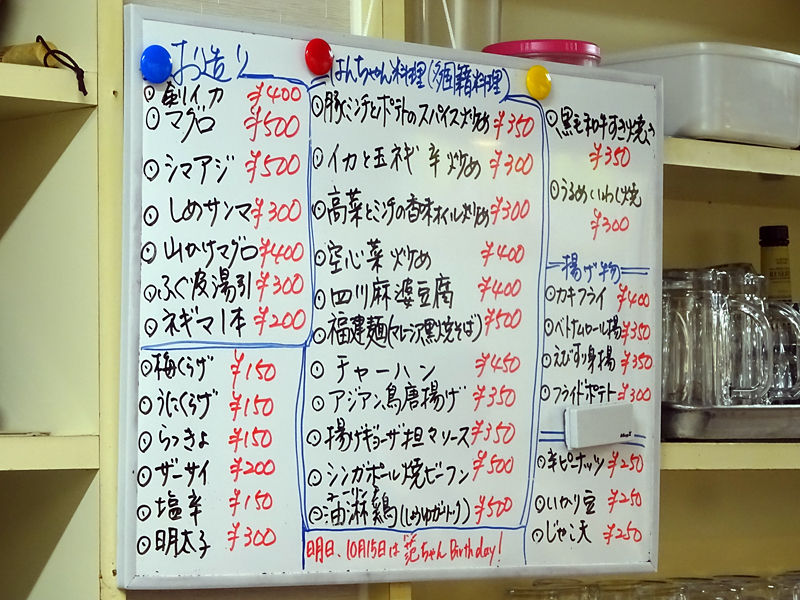 お造り
剣イカ ¥400
マグロ ¥500
シマアジ ¥500
しめサンマ ¥300
山かけマグロ ¥400
ふぐ皮湯引 ¥300
ネギマ1本 ¥200
梅くらげ ¥150
うにくらげ ¥150
らっきょ ¥150
ザーサイ ¥200
塩辛 ¥150
明太子 ¥300
はんちゃん料理(多国籍料理)
豚ミンチとポテトのスパイス炒め ¥350
イカと玉ネギ辛炒め ¥300
高菜とミンチの香味オイル炒め ¥300
空心菜炒め ¥400
四川麻婆豆腐 ¥400
福建麺(マレーシア黒焼そば) ¥500
チャーハン ¥450
アジアン鳥唐揚げ ¥350
揚げギョーザ担々ソース ¥350
シンガポール焼ビーフン ¥500
ユーリンチー
油淋鶏(しょうゆがトリ) ¥500
明日、10月15日は範ちゃんBirthday!
黒毛和牛すき焼ふう
¥350
うるめいわし焼
¥300
揚げ物
カキフライ ¥400
ベトナムロール揚 ¥350
えびすり身揚 ¥350
フライドポテト ¥300
辛ピーナッツ ¥250
いかり豆 ¥250
じゃこ天 ¥250